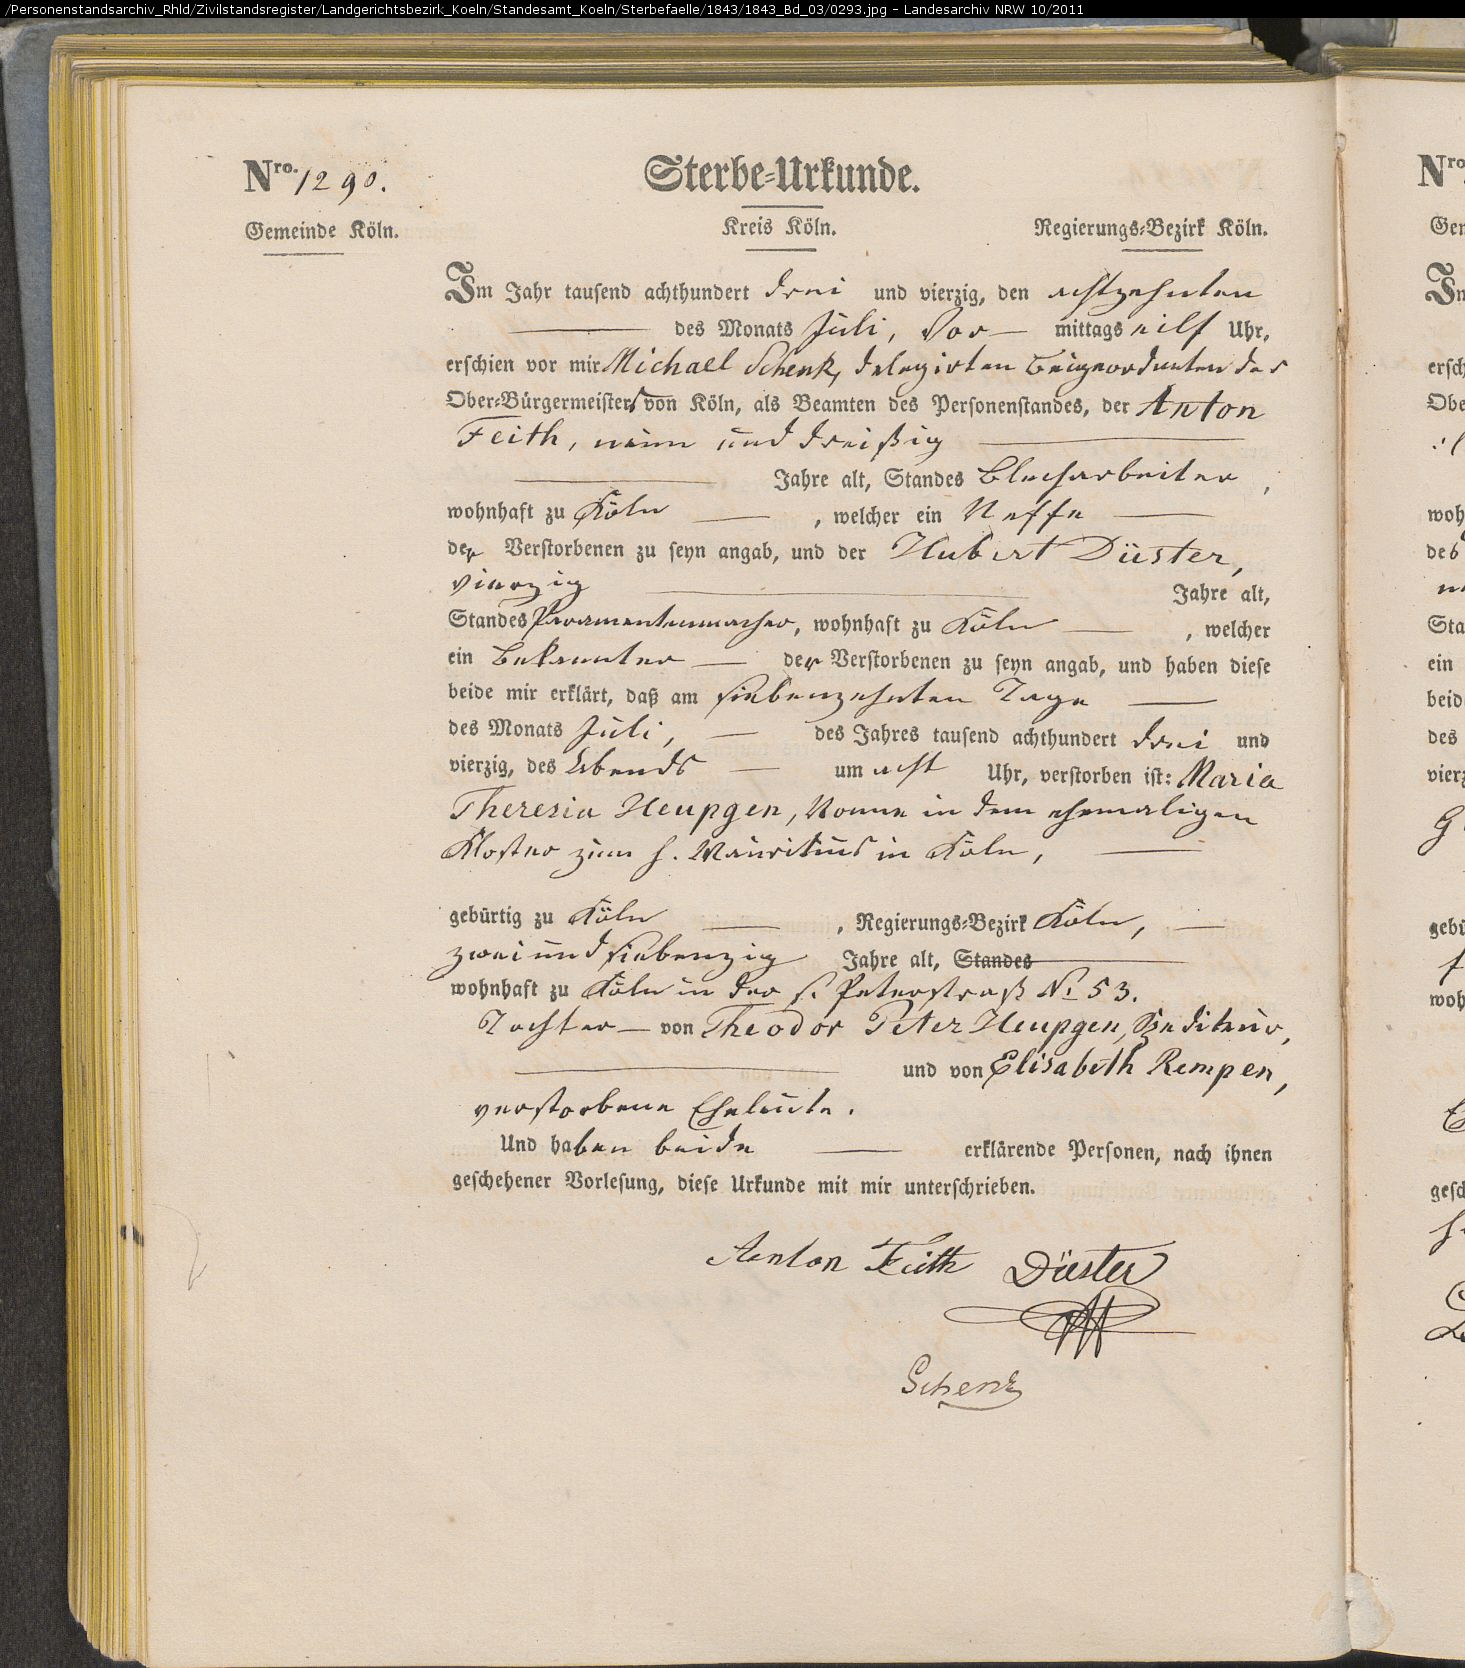 /Personenstandsarchiv_Rhld/Zivilstandsregister/Landgerichtsbezirk_Koeln/Standesamt_Koeln/Sterbefaelle/1843/1843_Bd_03/0293.jpg - Landesarchiv NRW 10/2011
Nro. 1290.
Sterbe-Urkunde.
Gemeinde Köln. Kreis Köln. Regierungs-Bezirk Köln.
Im Jahr tausend achthundert drei und vierzig, den achtzehnten
des Monats Juli, Vor mittags eilf Uhr,
erschien vor mir Michael Schenk, delegirten Beigeordneten des
Ober-Bürgermeisters von Köln, als Beamten des Personenstandes, der Anton
Feith, neun und dreißig
Jahre alt, Standes Blecharbeiter,
wohnhaft zu Köln, welcher ein Neffe
der Verstorbenen zu seyn angab, und der Hubert Düster,
vierzig Jahre alt,
Standes Paramentenmacher, wohnhaft zu Köln, welcher
ein Bekannter der Verstorbenen zu seyn angab, und haben diese
beide mir erklärt, daß am siebenzehnten Tage
des Monats Juli, des Jahres tausend achthundert drei und
vierzig, des Abends um acht Uhr, verstorben ist: Maria
Theresia Heupgen, Nonne in dem ehemaligen
Kloster zum h. Mauritius in Köln,
gebürtig zu Köln, Regierungs-Bezirk Köln,
zwei und siebenzig Jahre alt, Standes
wohnhaft zu Köln in der h. Peterstraß No 53.
Tochter von Theodor Peter Heupgen, Spediteur,
und von Elisabeth Rempen,
verstorbene Eheleute.
Und haben beide erklärende Personen, nach ihnen
geschehener Vorlesung, diese Urkunde mit mir unterschrieben.
Anton Feith Düster
Schenk
Nro.